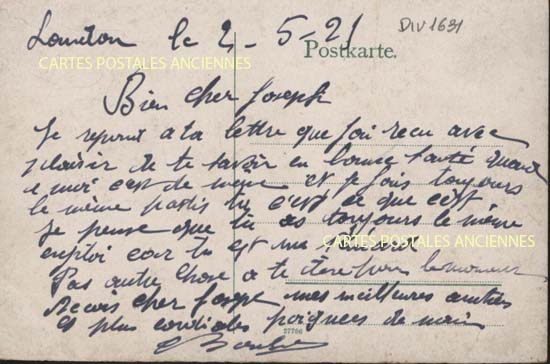 le 2-5-21
DIV1631
Postkarte.
CARTES POSTALES ANCIENNES
Bien cher Joseph
Je repond a ta lettre que j'ai recu avec
plaisir de te savoir en bonne santé quand
a moi c'est de meme et je fais toujours
le même c'est ce que c'est
Je pense que tu as toujours le même
emploi car tu est
CARTES POSTALES ANCIENNES
Pas autre chose a te dire pour le moment
Recois cher Joseph mes meilleures amitiés
et plus cordiales poignees de main
27706